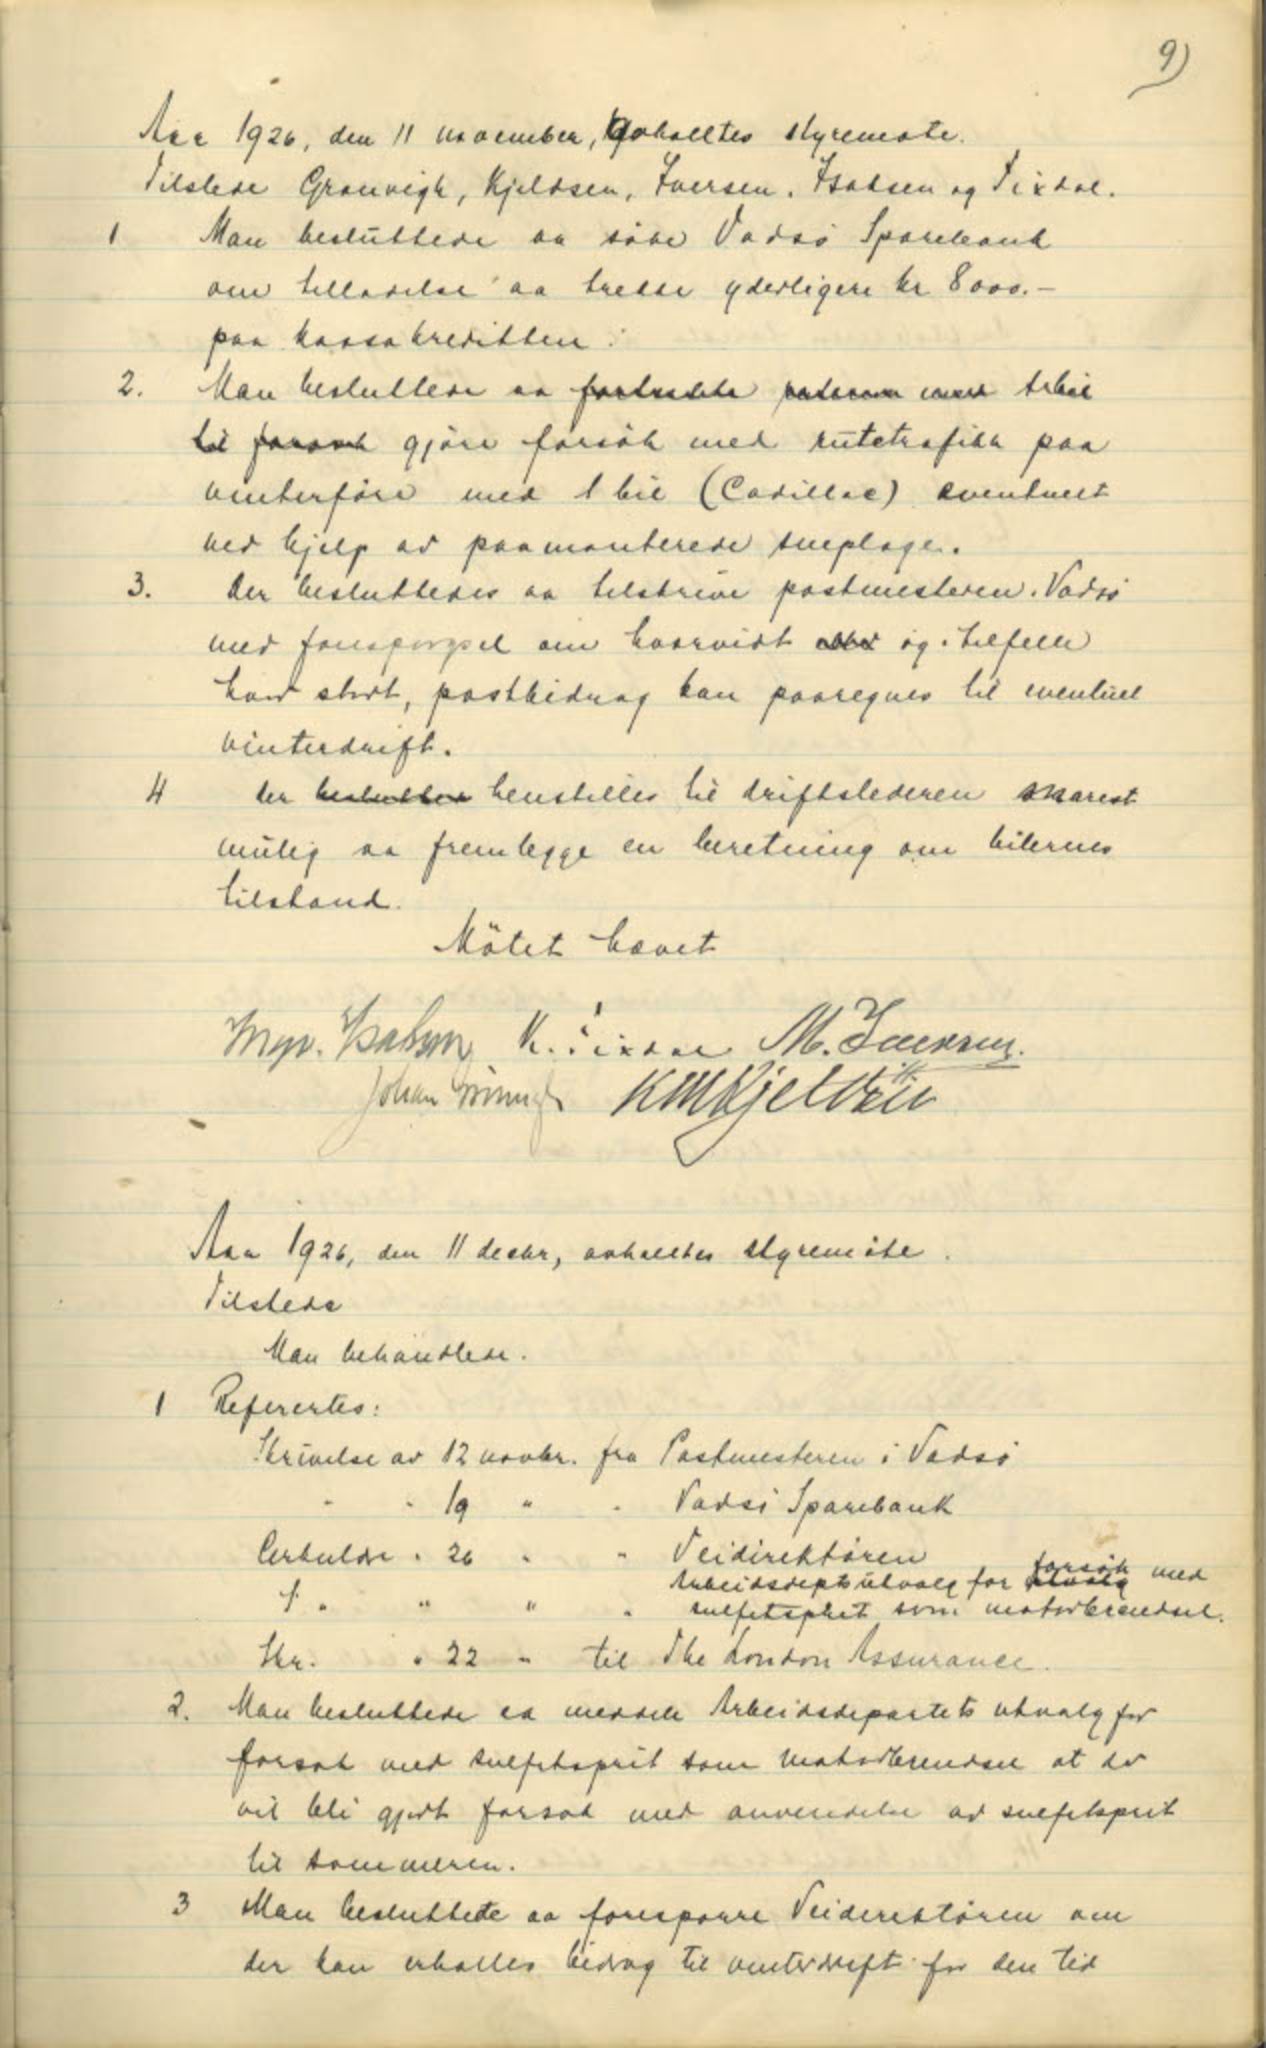 9)
Aar 1926, den 11 november, avholltes styremøte.
Tilstede Grønvigh, Kjeldsen, Iversen, Isaksen og Sixdal.
1 Man besluttede aa søke Vadsø Sparebank
om tilladelse aa trekke yderligere kr 8000.-
paa kassakreditten.
2. Man besluttede aa fortsette med 1 bil
til forsøk gjøre forsøk med rutetrafikk paa
vinterføre med 1 bil (Cadillac) eventuelt
ved hjelp av paamonterede sneploge.
3. Der besluttedes aa tilskrive postmesteren i Vadsø
med forespørgsel om hvorvidt og i tilfelle
hvor stort, postbidrag kan paaregnes til eventuel
vinterdrift.
4 Der beslutter henstilles til driftslederen snarest
mulig aa fremlegge en beretning om bilernes
tilstand.
Møtet hævet
Ingv. Isaksen K. Sixdal M. Iversen.
Johan Grønvigh KM Kjeldsen
Aar 1926, den 11 decbr, avholltes styremøte.
Tilstede
Man behandlede.
1 Referertes:
Skrivelse av 12 novbr. fra Postmesteren i Vadsø
" " 19 " " Vadsø Sparebank
Cirkulære " 26 " " Veidirektøren
" " " " Arbeidsdepts utvalg for utvalg forsøk med
sulfitsprit som motorbrendsel.
Skr. " 22 " til The London Assurance.
2. Man besluttede aa meddele Arbeidsdepartets utvalg for
forsøk med sulfitsprit som motorbrendsel at der
vil bli gjort forsøk med anvendelse av sulfitsprit
til sommeren.
3 Man besluttede aa forespørre Veidirektøren om
der kan erholles bidrag til vinterdrift for den tid